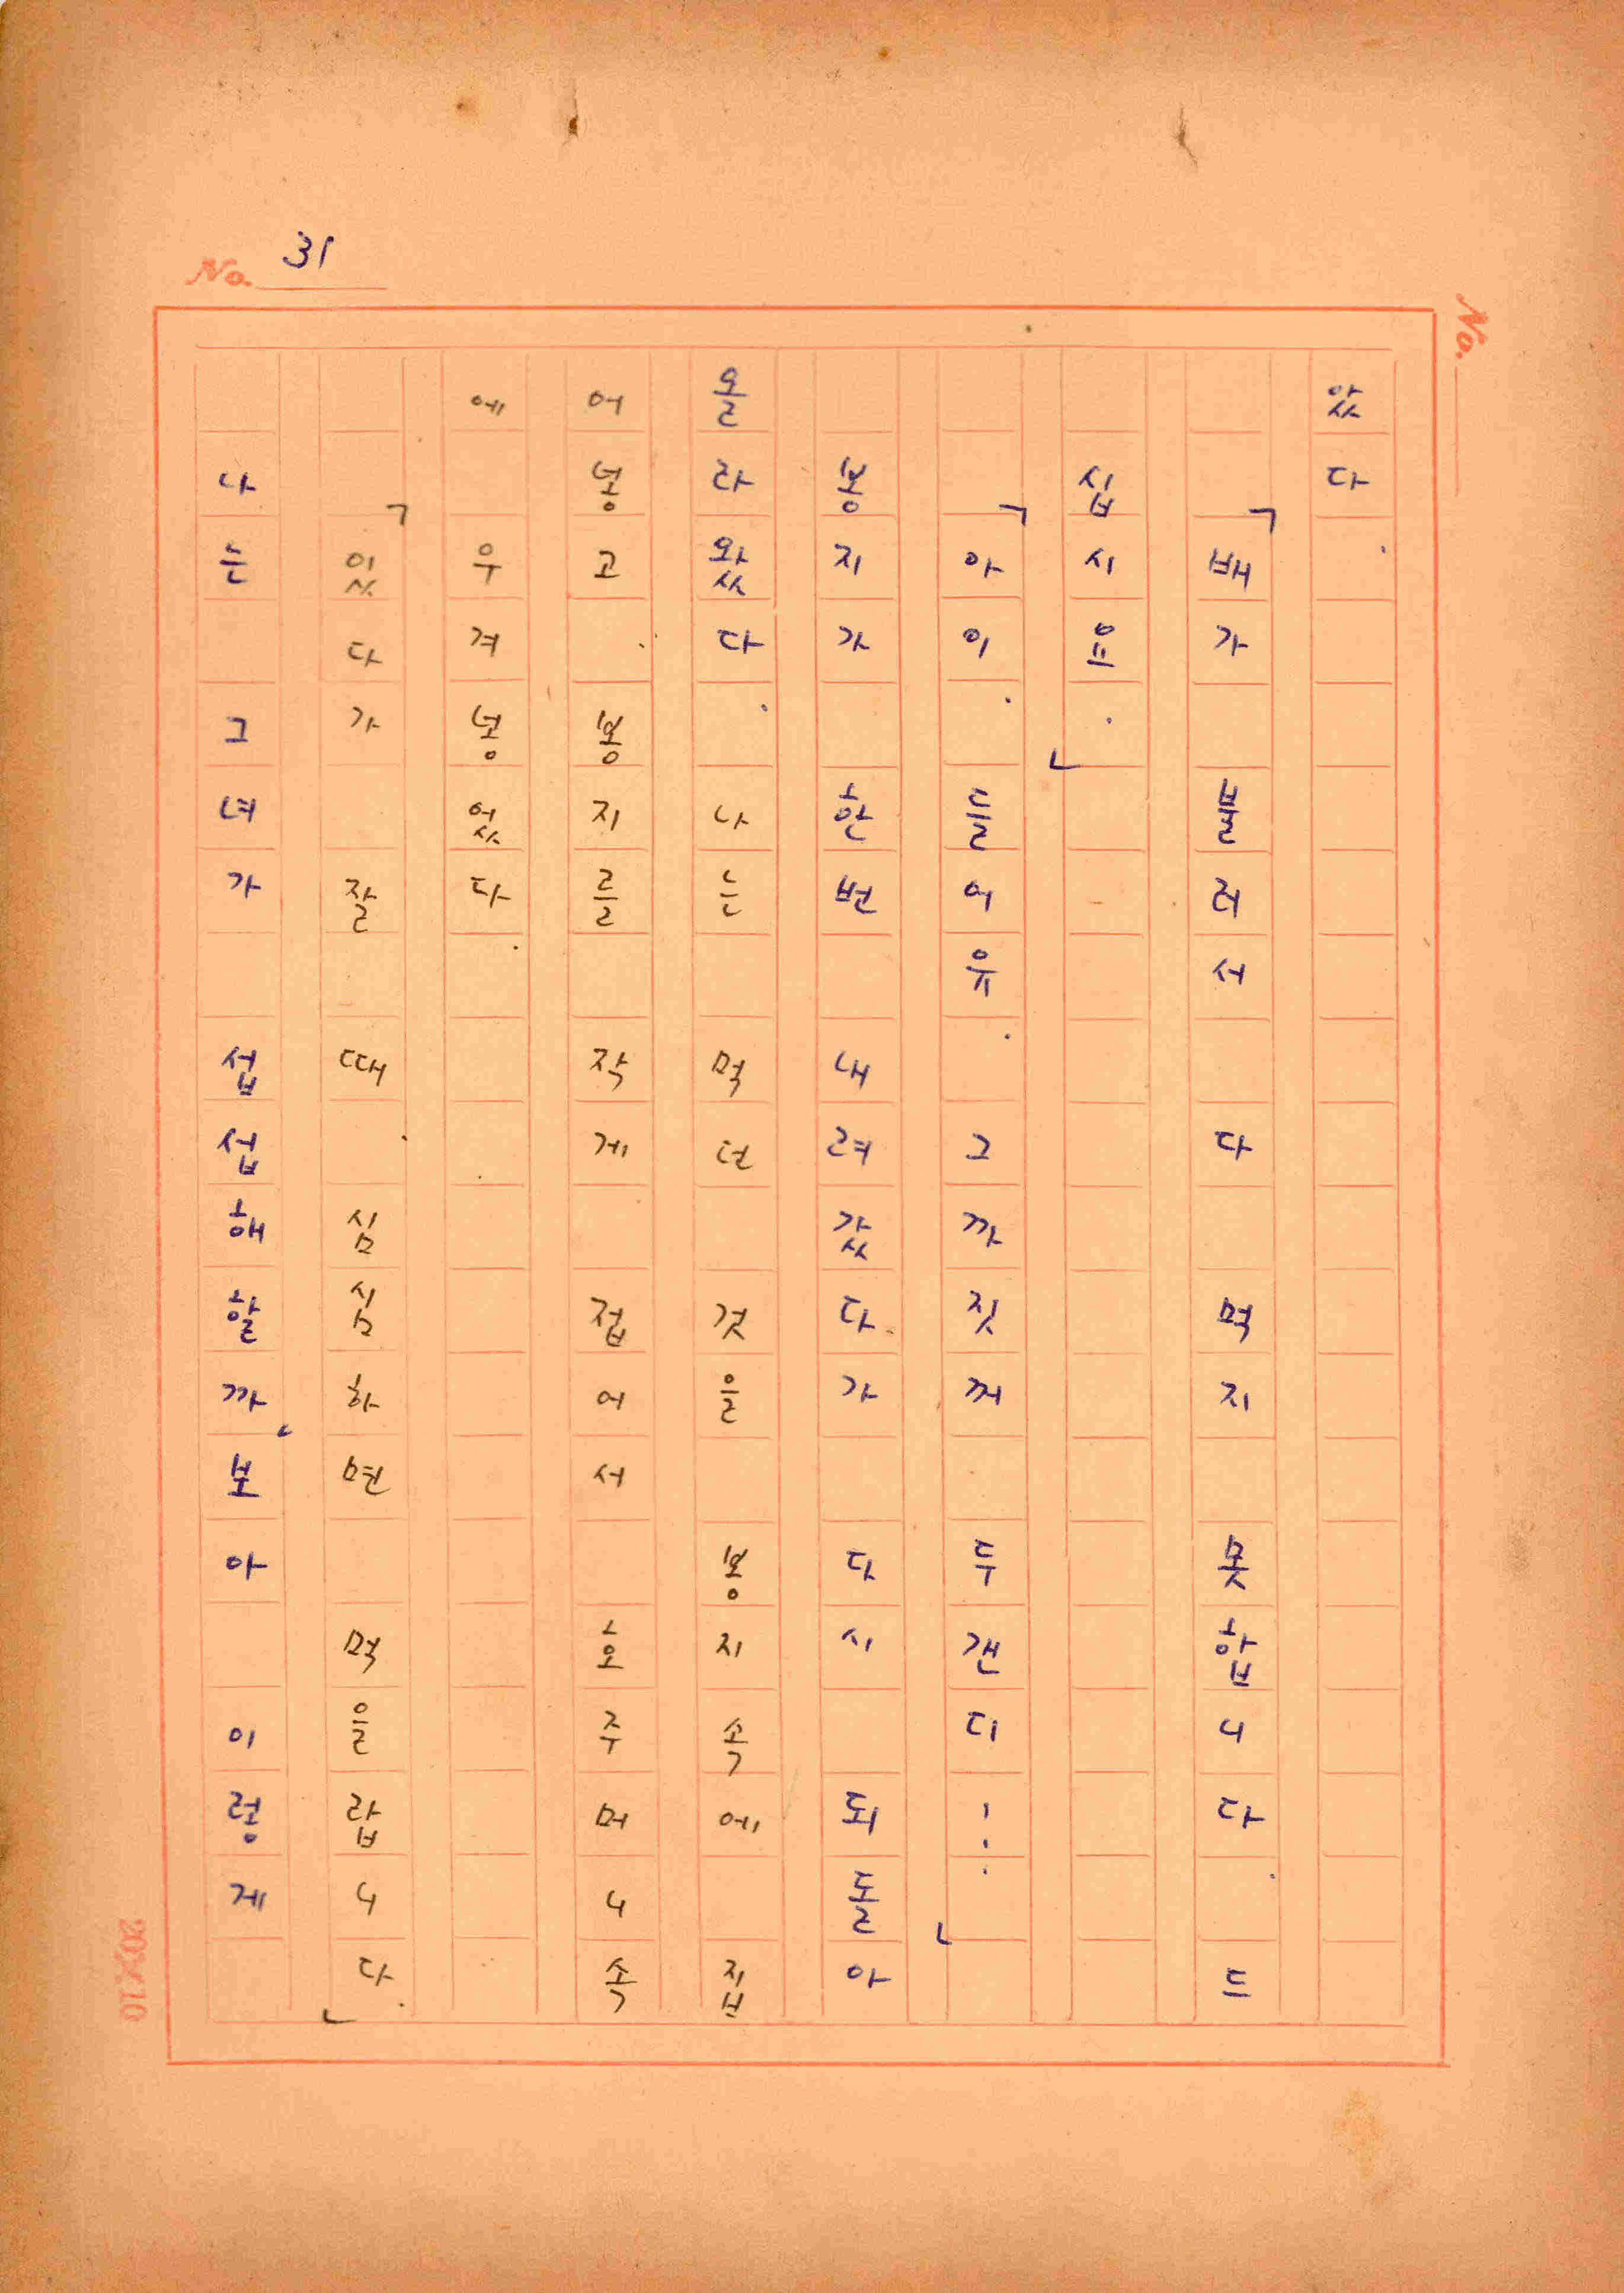 No. 31
No.
았다.
「배가 불러서 다 먹지 못합니다. 드
십시요.」
「아이. 들어유. 그까짓꺼 두갠디……」
봉지가 한번 내려갔다가 다시 되돌아
올라왔다. 나는 먹던 것을 봉지속에 집
어넣고. 봉지를 작게 접어서 호주머니속
에 우겨넣었다.
「있다가 잘 때. 심심하면 먹을랍니다.」
나는 그녀가 섭섭해할까, 보아 이렇게
20×10